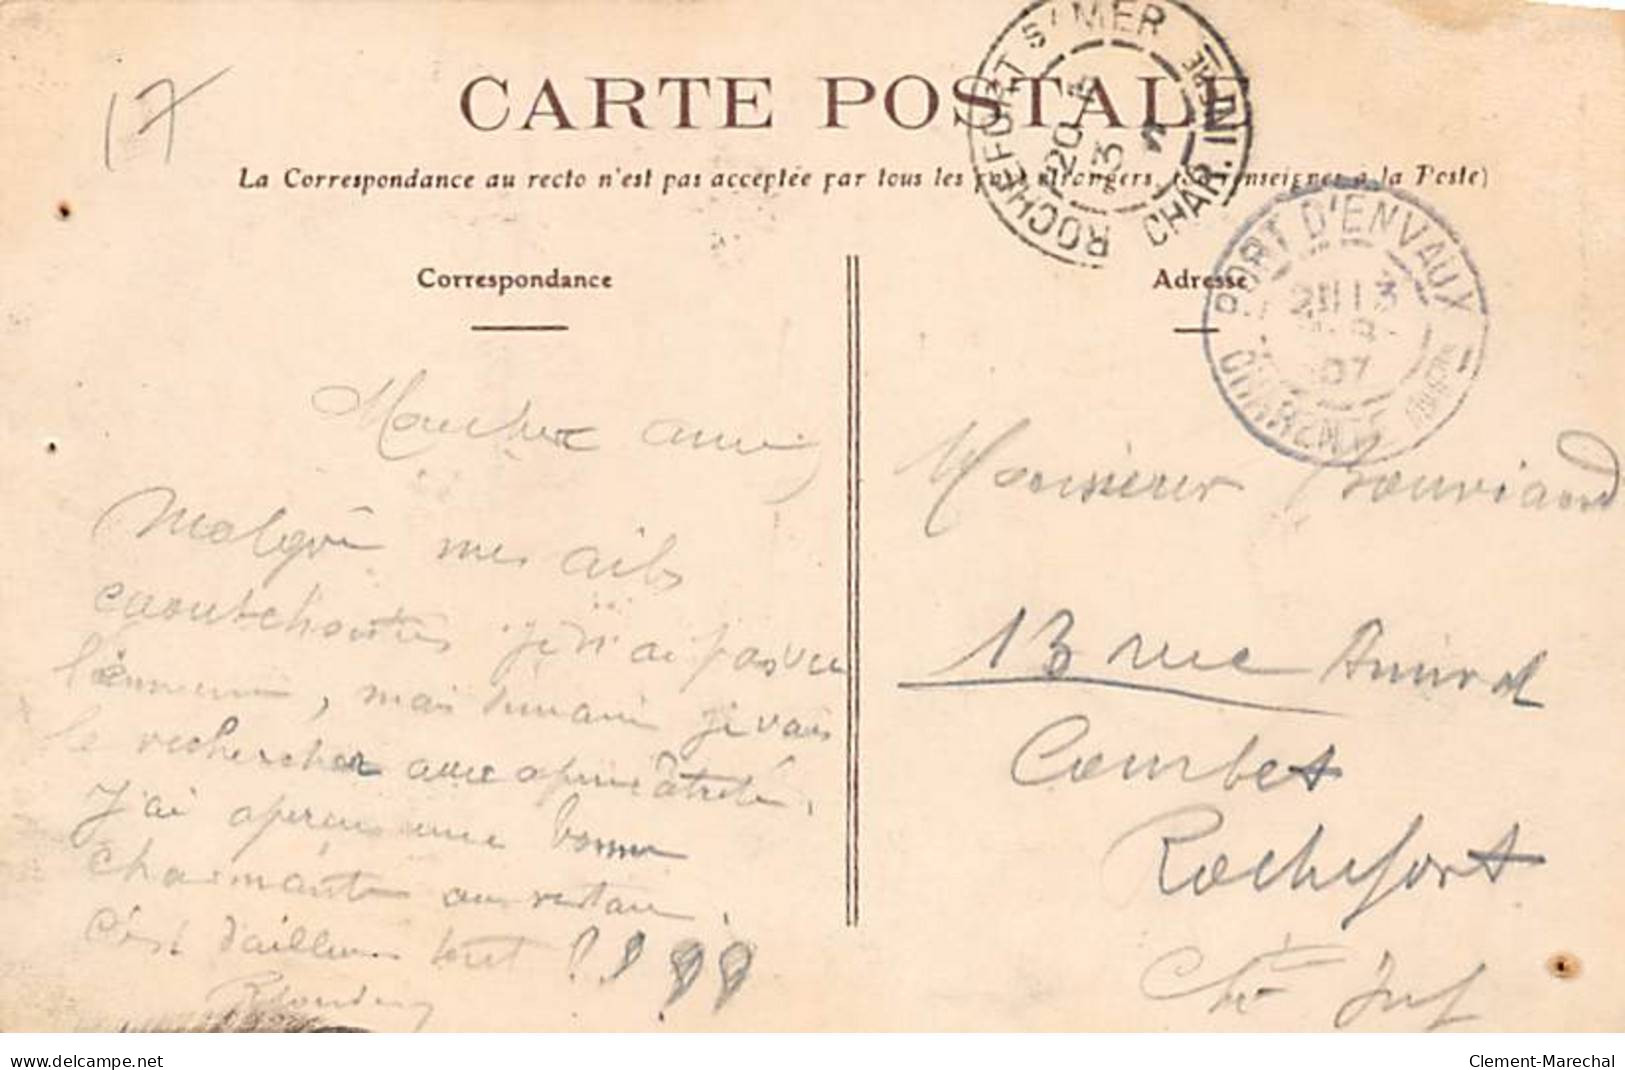 17
CARTE POSTALE
La Correspondance au recto n'est pas acceptée par tous les pays étrangers, renseigner à la Poste)
ROCHEFORT S/ MER
20
3
CHAR. INFRE
PORT D'ENVAUX
3
07
CHARENTE
Correspondance
Adresse
Mon cher ami,
Malgré mes ailes
caoutchoutées je n'ai pas vu
mais demain je vais
le rechercher avec
J'ai aperçu une bonne
charmante au restau.
C'est d'ailleurs tout ! ! ! !
Monsieur
13 rue Amiral
Courbet
Rochefort
Chte Inf
www.delcampe.net
Clement-Marechal